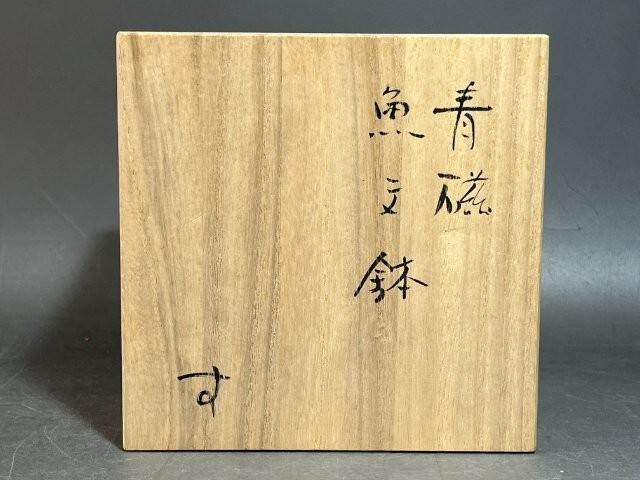 青磁
魚文鉢
す